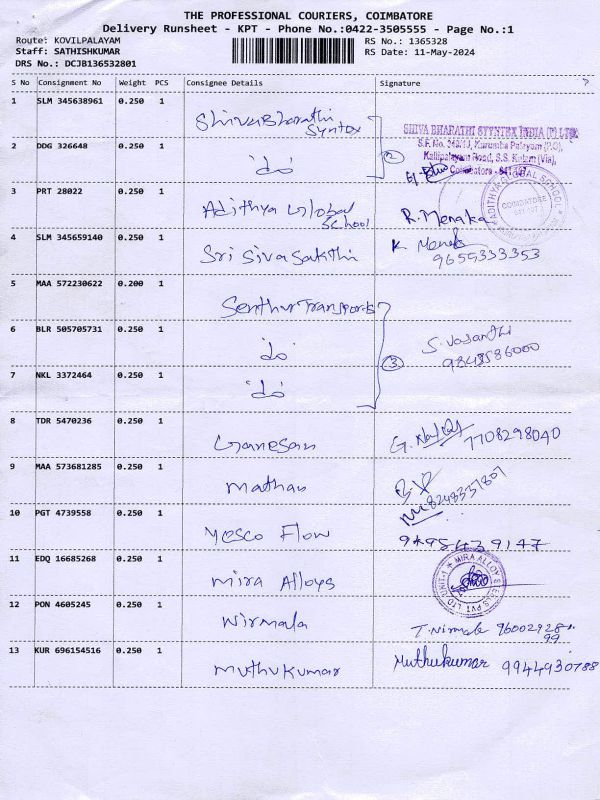 THE PROFESSIONAL COURIERS, COIMBATORE
Delivery Runsheet - KPT - Phone No.:0422-3505555 - Page No.:1
Route: KOVILPALAYAM
RS No.: 1365328
Staff: SATHISHKUMAR
RS Date: 11-May-2024
DRS No.: DCJB136532801
S No Consignment No Weight PCS Consignee Details Signature
1 SLM 345638961 0.250 1
Shivabharathi
Syntex
SHIVA BHARATHI SYYNTEX INDIA (P) LTD
S.F. No. 343/1J, Kurumba Palayam (P.O),
Kallipalayam Road, S.S. Kulam (Via),
Coimbatore - 641 107
2 DDG 326648 0.250 1
"do"
2
3 PRT 28022 0.250 1
Adithya Global
School
R. Menaka
ADITHYA GLOBAL SCHOOL
COIMBATORE
641 107
4 SLM 345659140 0.250 1
Sri Sivasakthi
K
9655333353
5 MAA 572230622 0.200 1
Senthur Transports
6 BLR 505705731 0.250 1
"do"
S. Vasanthi
9848586000
7 NKL 3372464 0.250 1
"do"
3
8 TDR 5470236 0.250 1
Ganesan
G.
7708298040
9 MAA 573681285 0.250 1
Mathan
8248337807
10 PGT 4739558 0.250 1
Mosco Flow
9498439147
11 EDQ 16685268 0.250 1
Mira Alloys
UNIT-1 ★ MIRA ALLOY STEELS PVT LTD
12 PON 4605245 0.250 1
Nirmala
T. Nirmala
13 KUR 696154516 0.250 1
Muthukumar
Muthukumar 9944930788